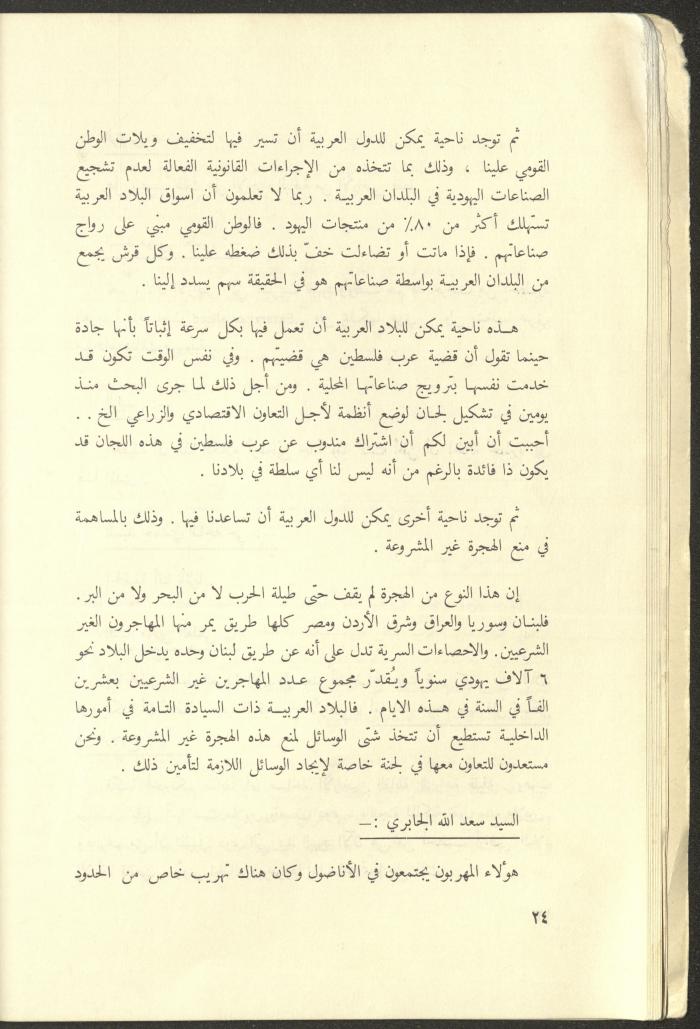 ثم توجد ناحية يمكن للدول العربية أن تسير فيها لتخفيف ويلات الوطن
القومي علينا ، وذلك بما تتخذه من الإجراءات القانونية الفعالة لعدم تشجيع
الصناعات اليهودية في البلدان العربية . ربما لا تعلمون أن اسواق البلاد العربية
تستهلك أكثر من ٨٠٪ من منتجات اليهود . فالوطن القومي مبني على رواج
صناعاتهم . فإذا ماتت أو تضاءلت خفّ بذلك ضغطه علينا . وكل قرش يجمع
من البلدان العربية بواسطة صناعاتهم هو في الحقيقة سهم يسدد إلينا .
هذه ناحية يمكن للبلاد العربية أن تعمل فيها بكل سرعة إثباتاً بأنها جادة
حينما تقول أن قضية عرب فلسطين هي قضيتهم . وفي نفس الوقت تكون قد
خدمت نفسها بترويج صناعاتها المحلية . ومن أجل ذلك لما جرى البحث منذ
يومين في تشكيل لجان لوضع أنظمة لأجل التعاون الاقتصادي والزراعي الخ . .
أحببت أن أبين لكم أن اشتراك مندوب عن عرب فلسطين في هذه اللجان قد
يكون ذا فائدة بالرغم من أنه ليس لنا أي سلطة في بلادنا .
ثم توجد ناحية أخرى يمكن للدول العربية أن تساعدنا فيها . وذلك بالمساهمة
في منع الهجرة غير المشروعة .
إن هذا النوع من الهجرة لم يقف حتى طيلة الحرب لا من البحر ولا من البر .
فلبنان وسوريا والعراق وشرق الأردن ومصر كلها طريق يمر منها المهاجرون الغير
الشرعيين . والاحصاءات السرية تدل على أنه عن طريق لبنان وحده يدخل البلاد نحو
٦ آلاف يهودي سنوياً ويُقدّر مجموع عدد المهاجرين غير الشرعيين بعشرين
الفاً في السنة في هذه الايام . فالبلاد العربية ذات السيادة التامة في أمورها
الداخلية تستطيع أن تتخذ شتّى الوسائل لمنع هذه الهجرة غير المشروعة . ونحن
مستعدون للتعاون معها في لجنة خاصة لإيجاد الوسائل اللازمة لتأمين ذلك .
السيد سعد الله الجابري : —
هؤلاء المهربون يجتمعون في الأناضول وكان هناك تهريب خاص من الحدود
٢٤